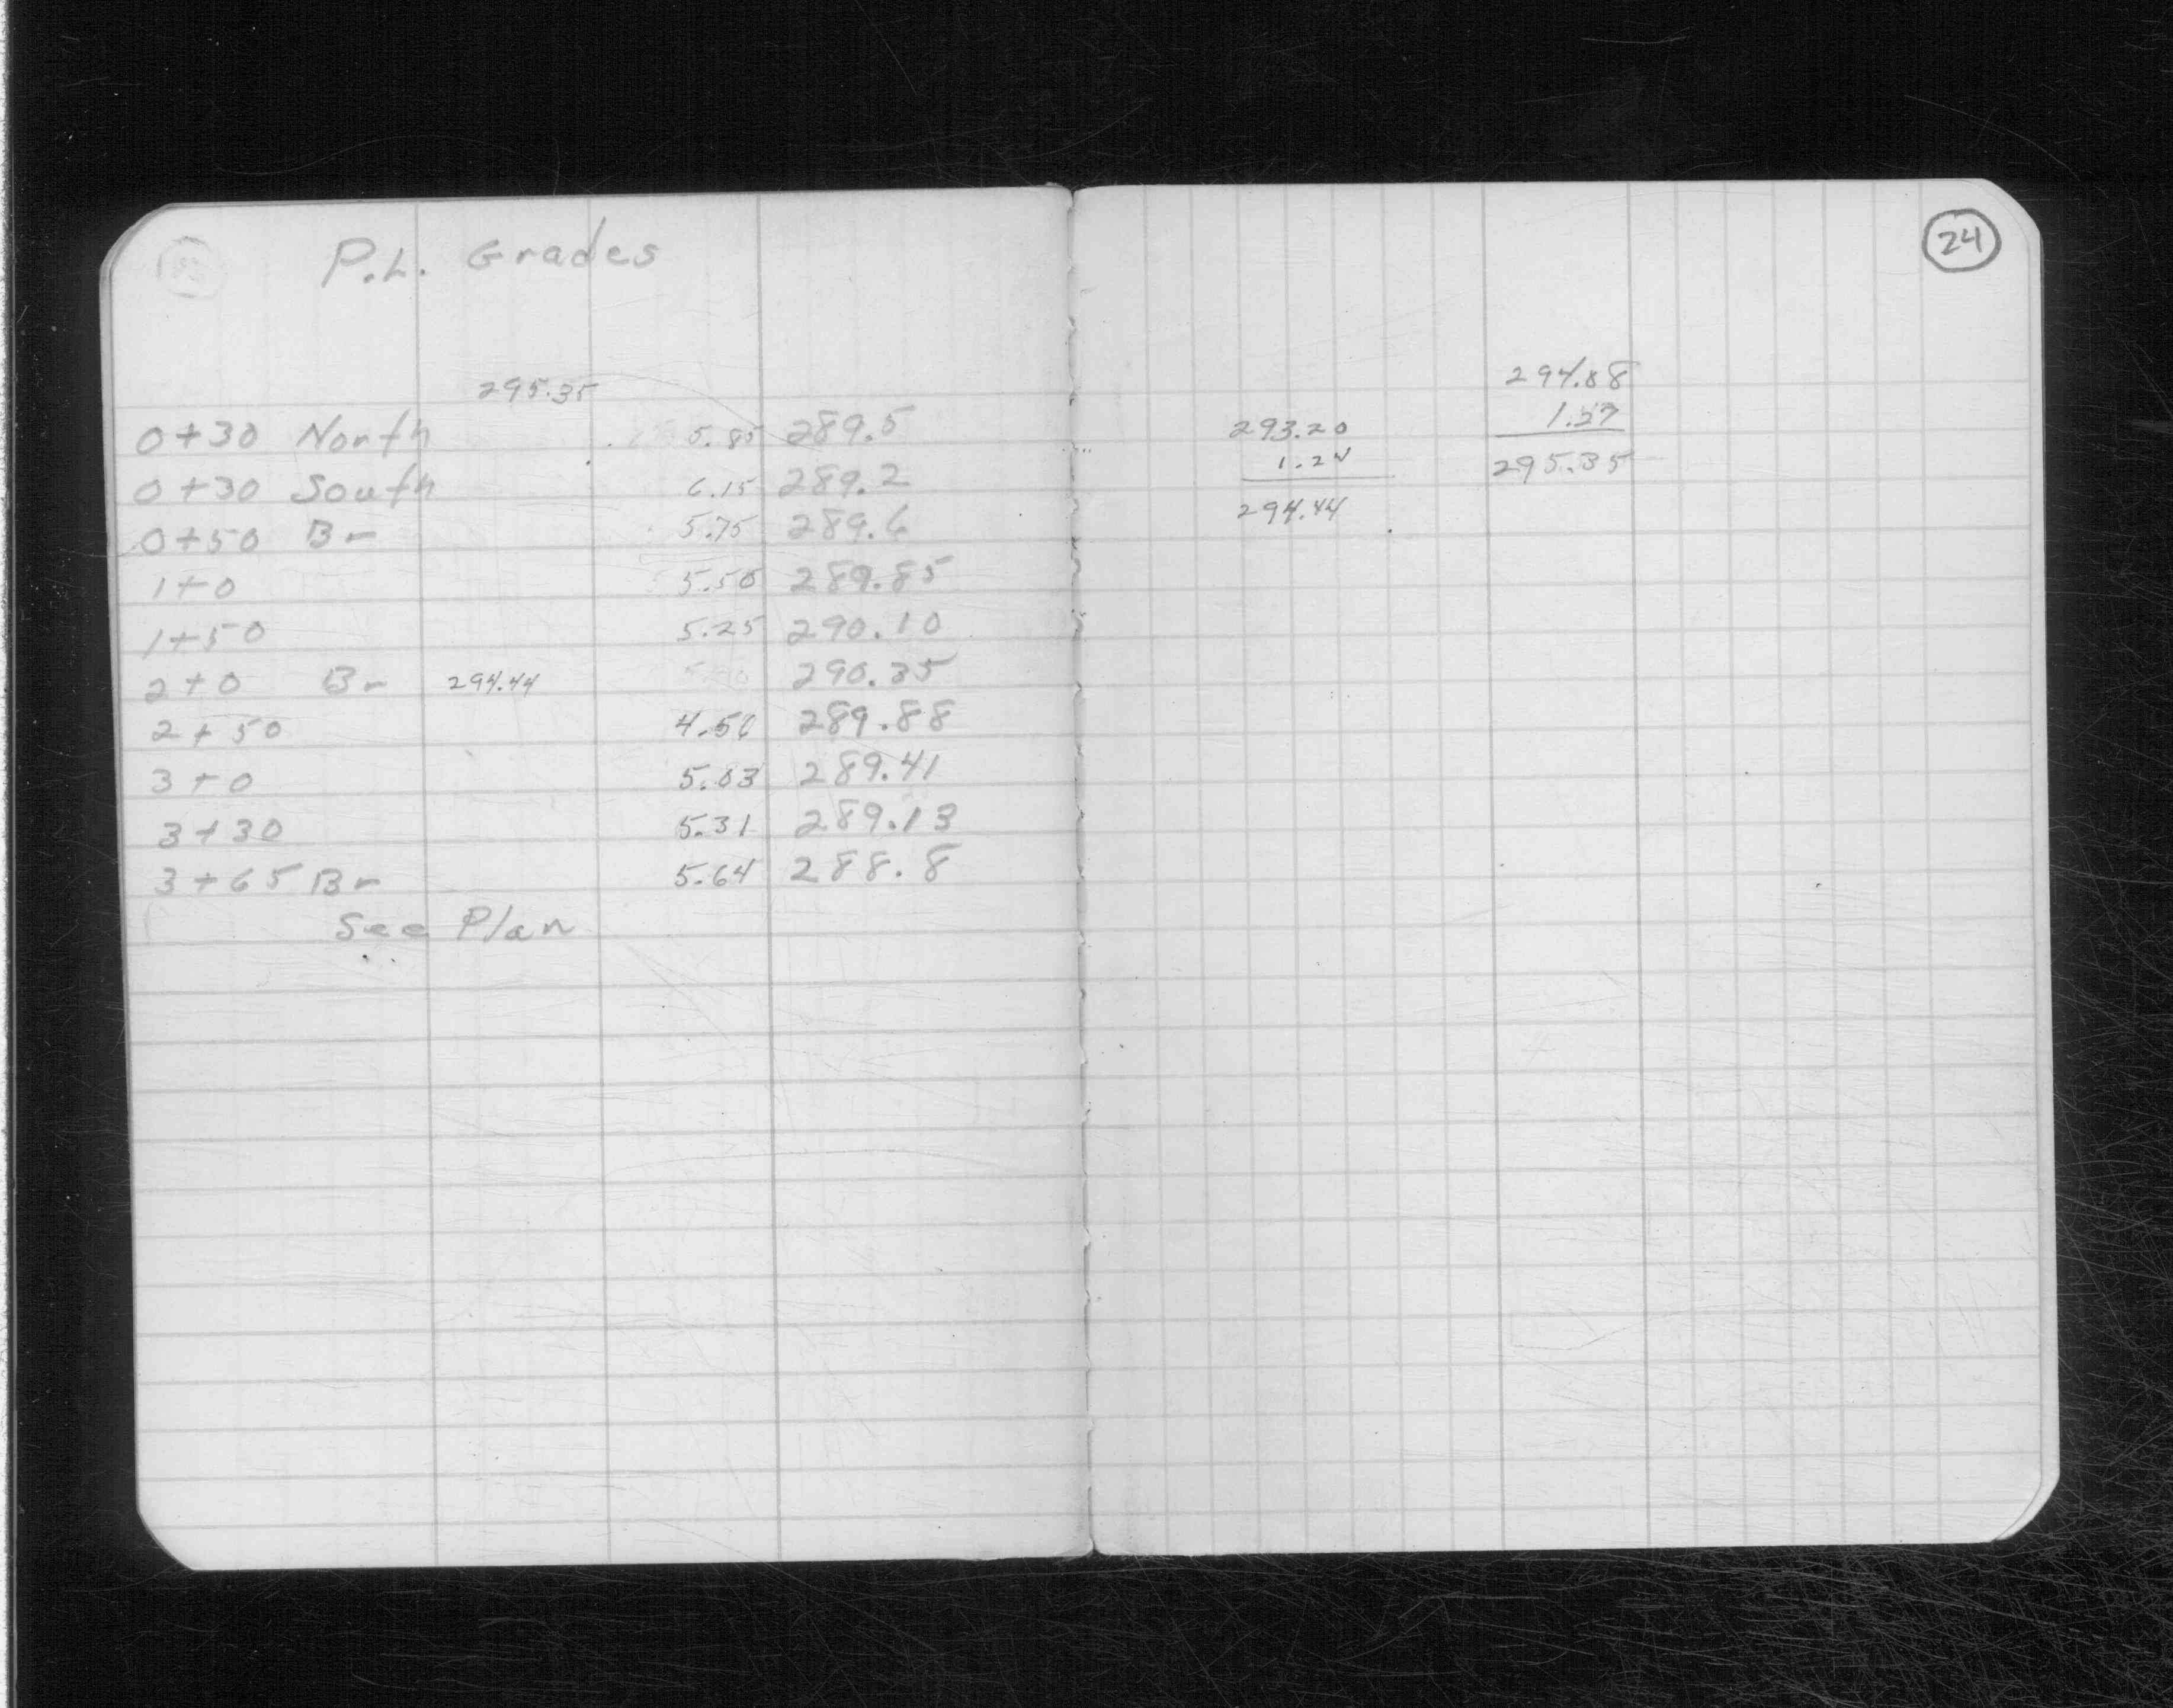 P.L. Grades
295.35
0+30 North 5.85 289.5
0+30 South 6.15 289.2
0+50 Br 5.75 289.6
1+0 5.50 289.85
1+50 5.25 290.10
2+0 Br 294.44 290.35
2+50 4.56 289.88
3+0 5.03 289.41
3+30 5.31 289.13
3+65 Br 5.64 288.8
See Plan
24
293.20
1.24
294.44
294.08
1.27
295.35